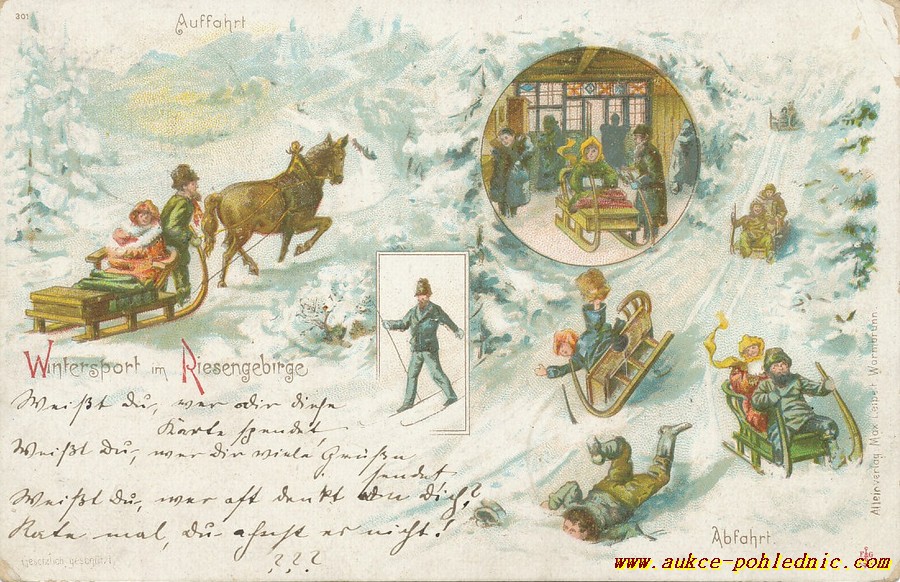 301
Auffahrt
Wintersport im Riesengebirge
Weißt du, wer dir diese
Karte spendet,
Weißt du, wer dir viele Grüße
sendet
Weißt du, wer oft denkt an dich?
Rate mal, du ahnst es nicht!
???
Abfahrt.
Alleinverlag Max Leipelt Warmbrunn
www.aukce-pohlednic.com